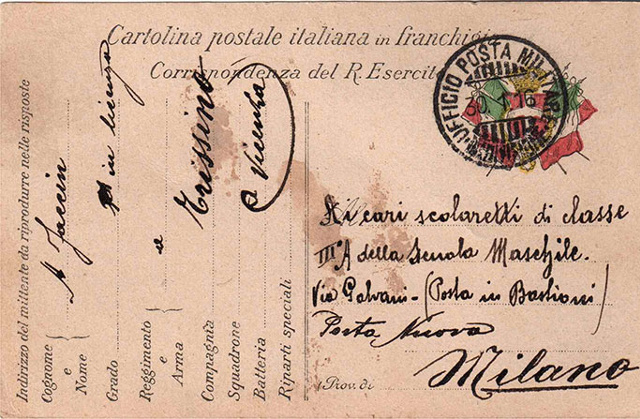 Cartolina postale italiana in franchigia
Corrispondenza del R. Esercito
UFFICIO POSTA MILITARE
30.1.16
Ai cari scolaretti di classe
IIIª A della Scuola Maschile.
Via Galvani - (Posta in Bastioni)
Porta Nuova
Milano
(Prov. di
Indirizzo del mittente da riprodurre nelle risposte
Cognome e Nome
Grado in licenza
Reggimento e Arma
Compagnia Trissino
Squadrone
Batteria Vicenza
Riparti speciali